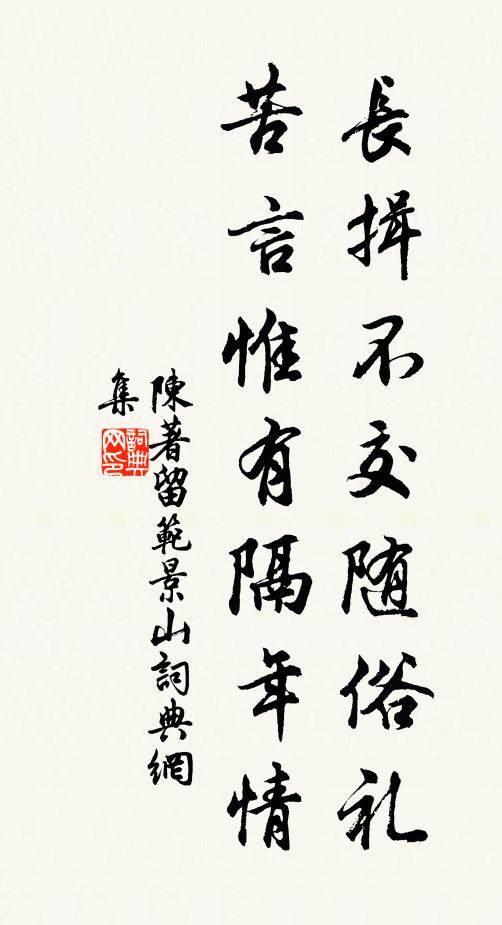 長揖不交随俗礼
苦言惟有隔年情
陳著留範景山詞典網
集
詞典网印